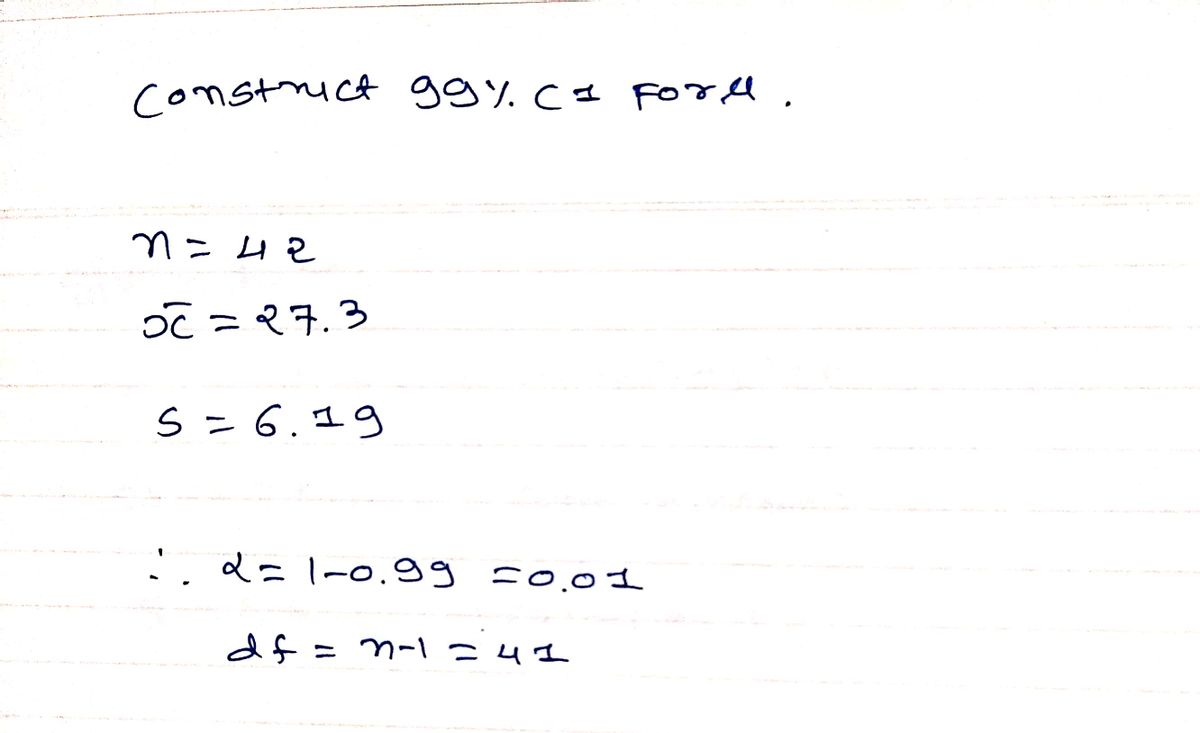 Construct 99% CI For μ.
n = 42
x̄ = 27.3
s = 6.19
∴ α = 1-0.99 = 0.01
df = n-1 = 41